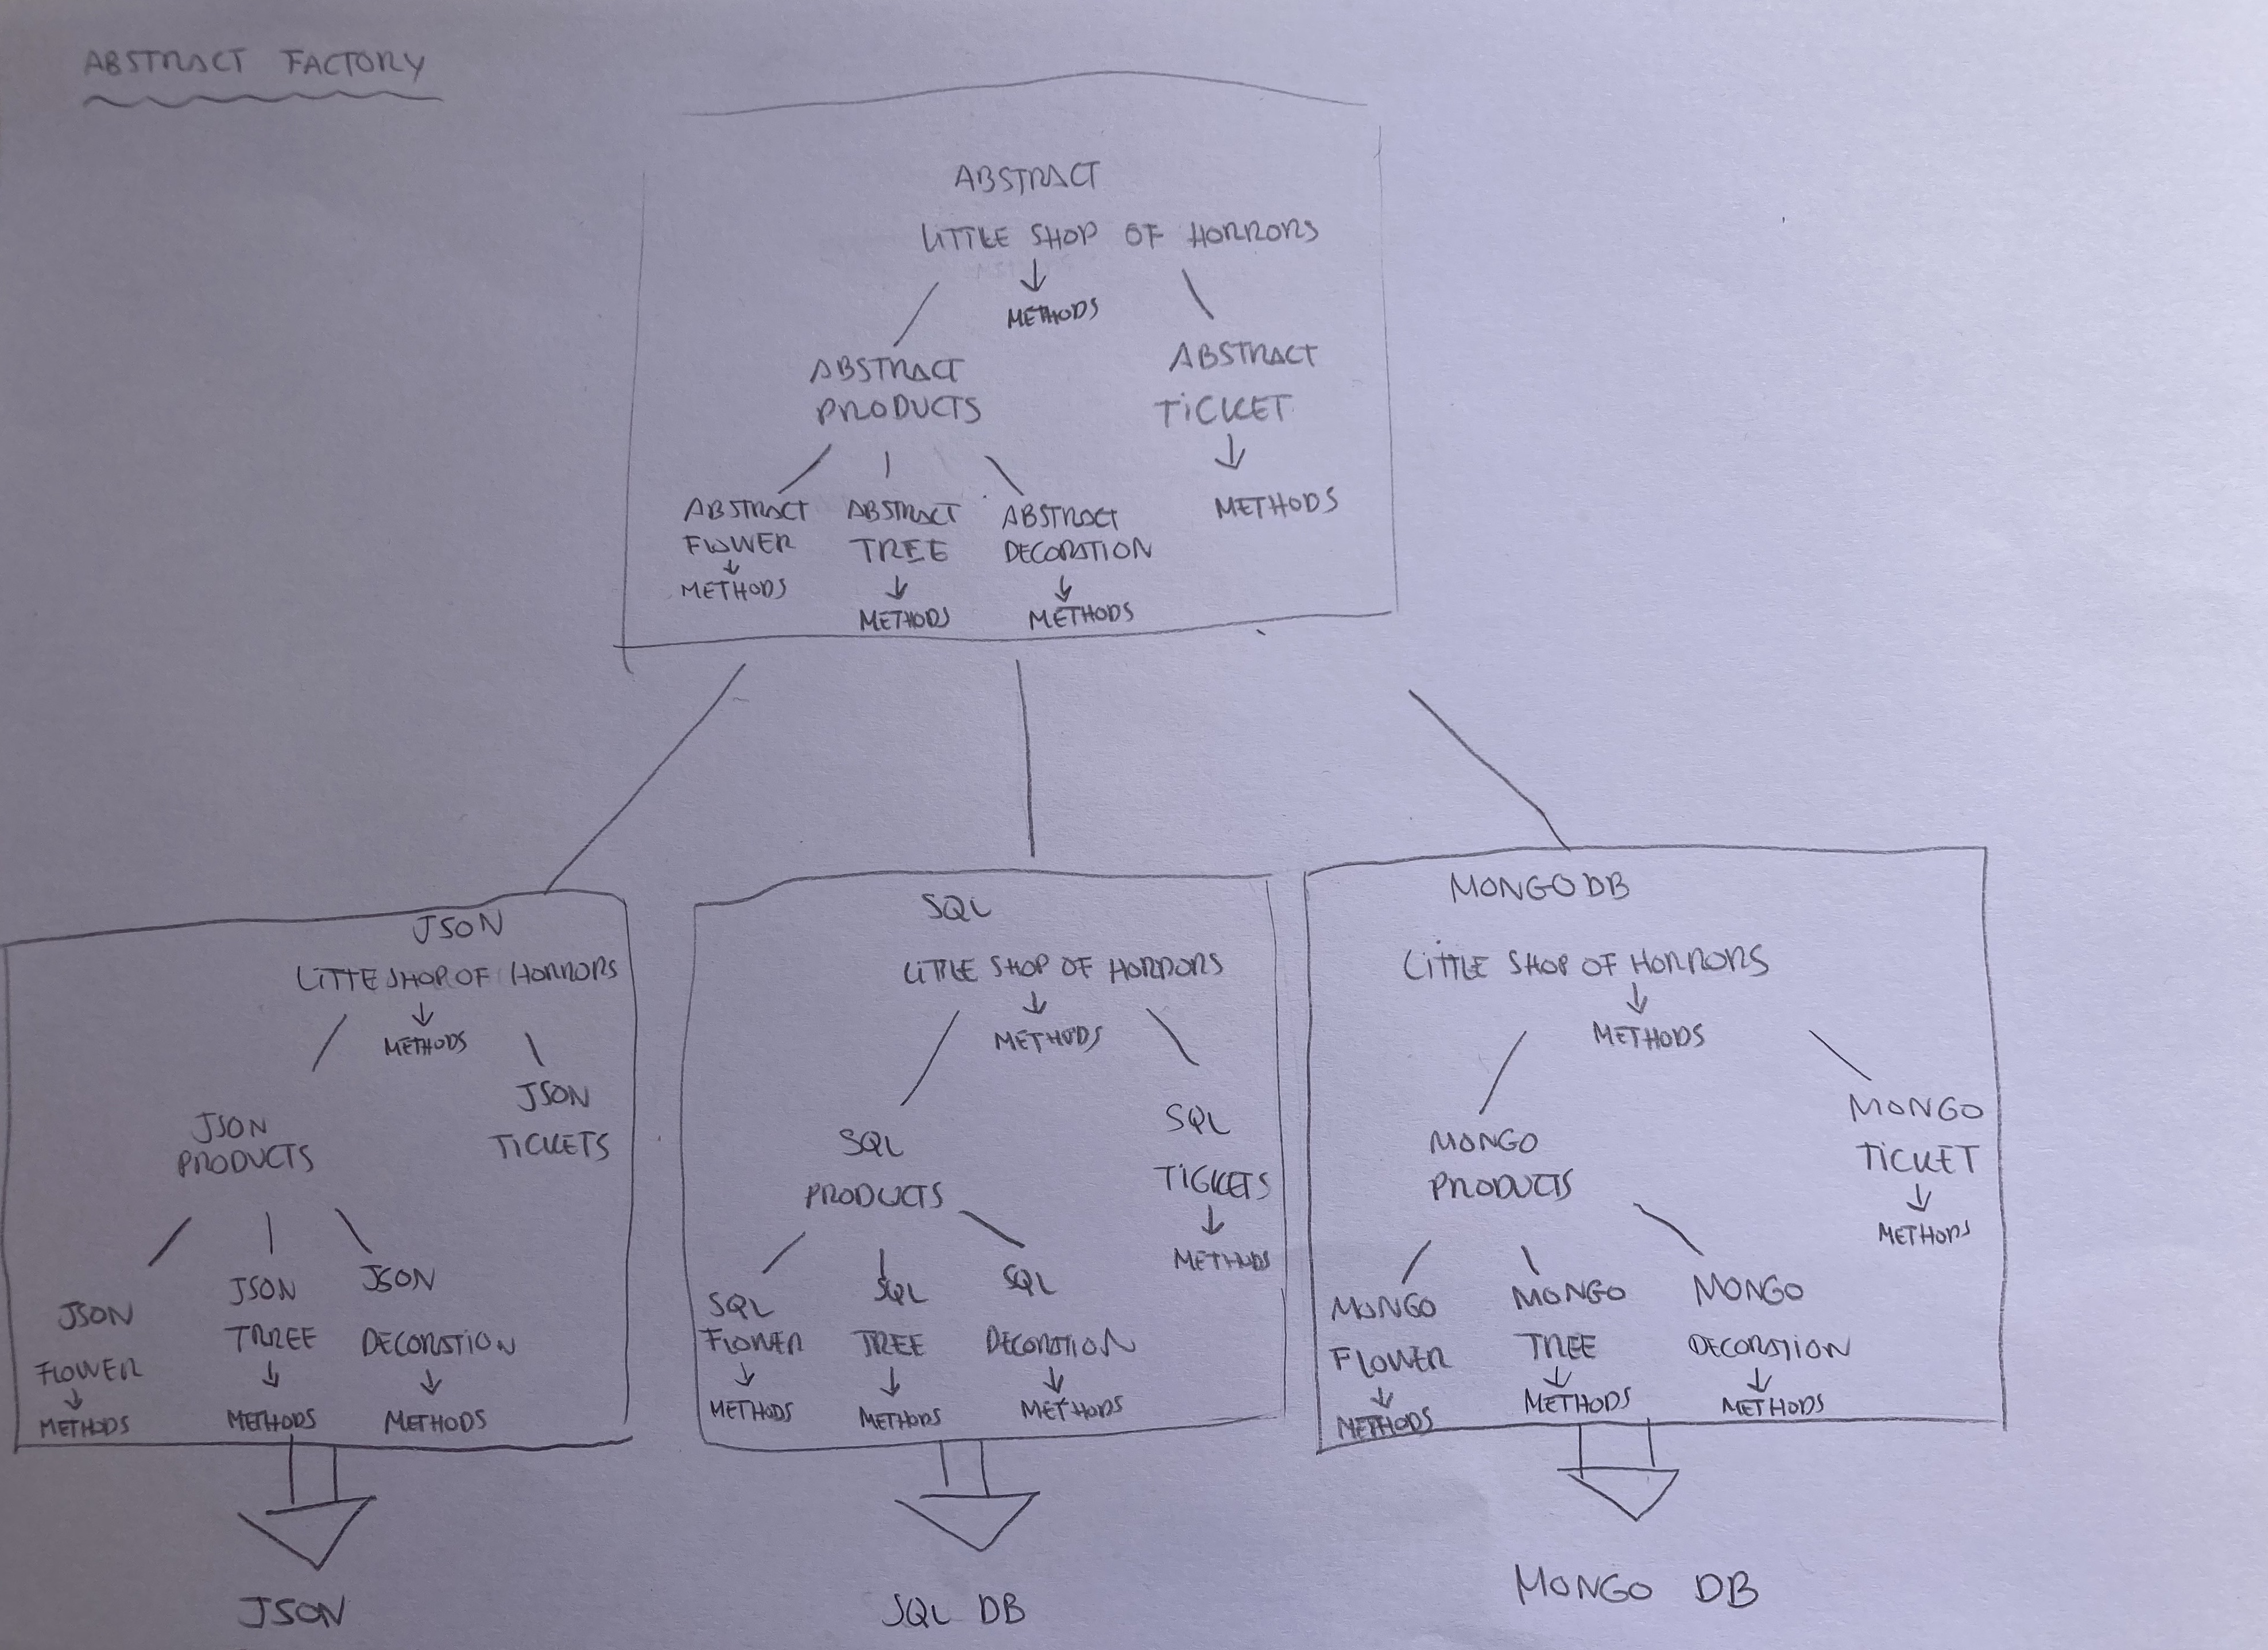 ABSTRACT FACTORY
ABSTRACT
LITTLE SHOP OF HORRORS
METHODS
ABSTRACT
PRODUCTS
ABSTRACT
TICKET
METHODS
ABSTRACT
FLOWER
METHODS
ABSTRACT
TREE
METHODS
ABSTRACT
DECORATION
METHODS
JSON
LITTE SHOP OF HORRORS
METHODS
JSON
PRODUCTS
JSON
TICKETS
JSON
FLOWER
METHODS
JSON
TRREE
METHODS
JSON
DECORATION
METHODS
JSON
SQL
LITTLE SHOP OF HORRORS
METHODS
SQL
PRODUCTS
SQL
TICKETS
METHODS
SQL
FLOWER
METHODS
SQL
TREE
METHODS
SQL
DECORATION
METHODS
SQL DB
MONGO DB
LITTLE SHOP OF HORRORS
METHODS
MONGO
PRODUCTS
MONGO
TICKET
METHODS
MONGO
FLOWER
METHODS
MONGO
TREE
METHODS
MONGO
DECORATION
METHODS
MONGO DB